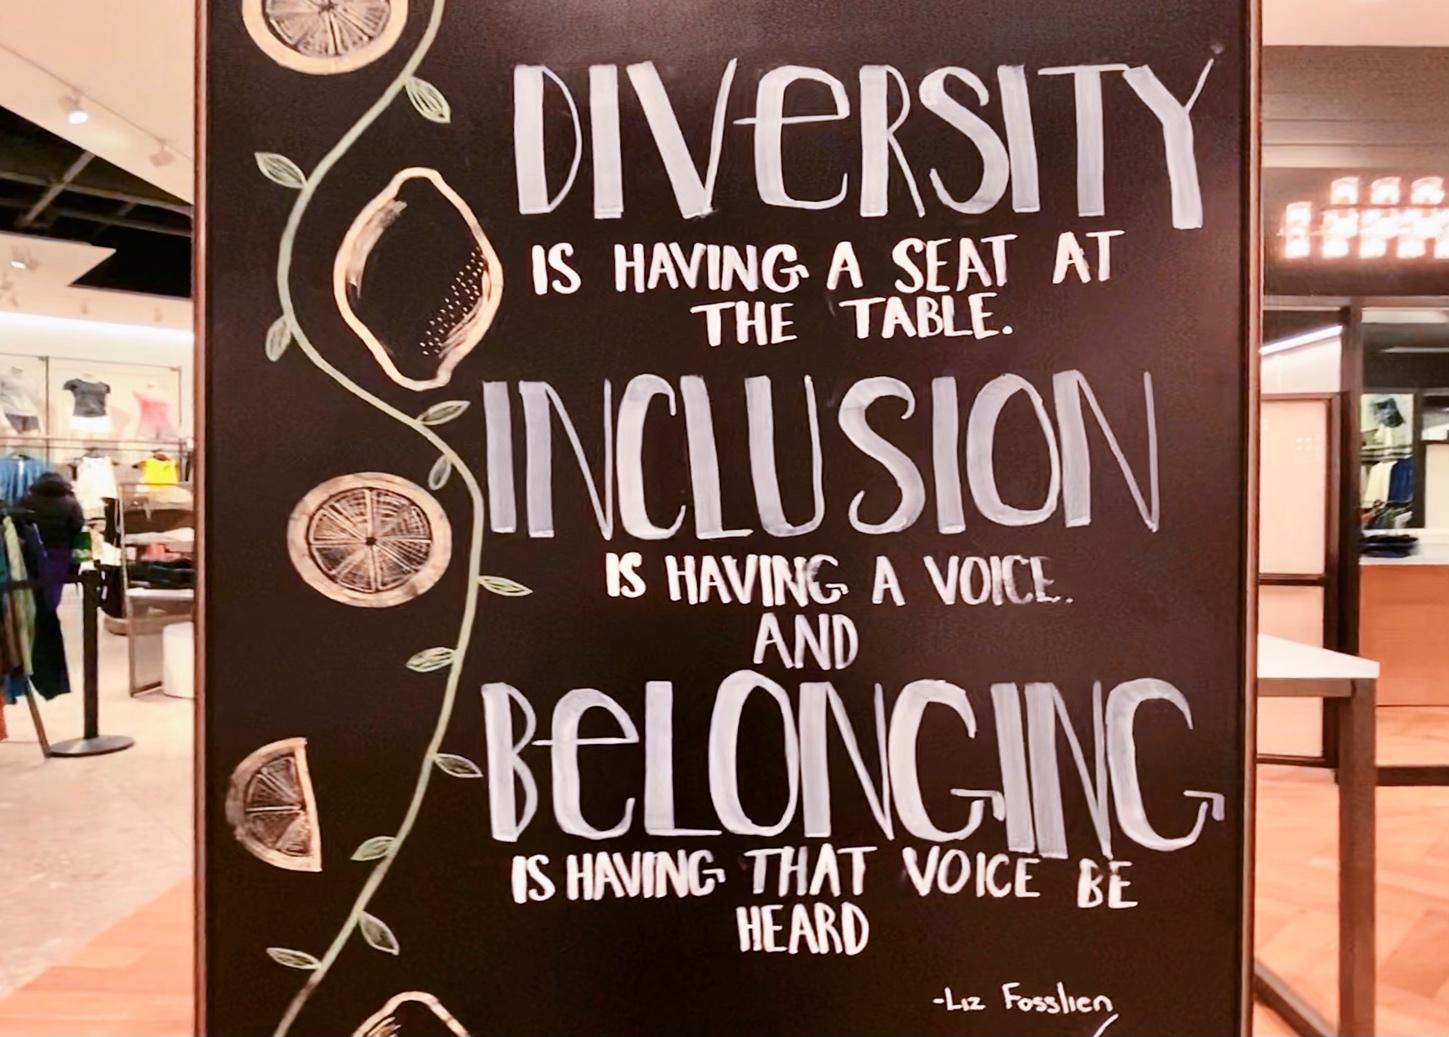 DIVeRSITY
IS HAVING A SEAT AT
THE TABLE.
INCLUSION
IS HAVING A VOICE.
AND
BeLONGING
IS HAVING THAT VOICE BE
HEARD
-Liz Fosslien